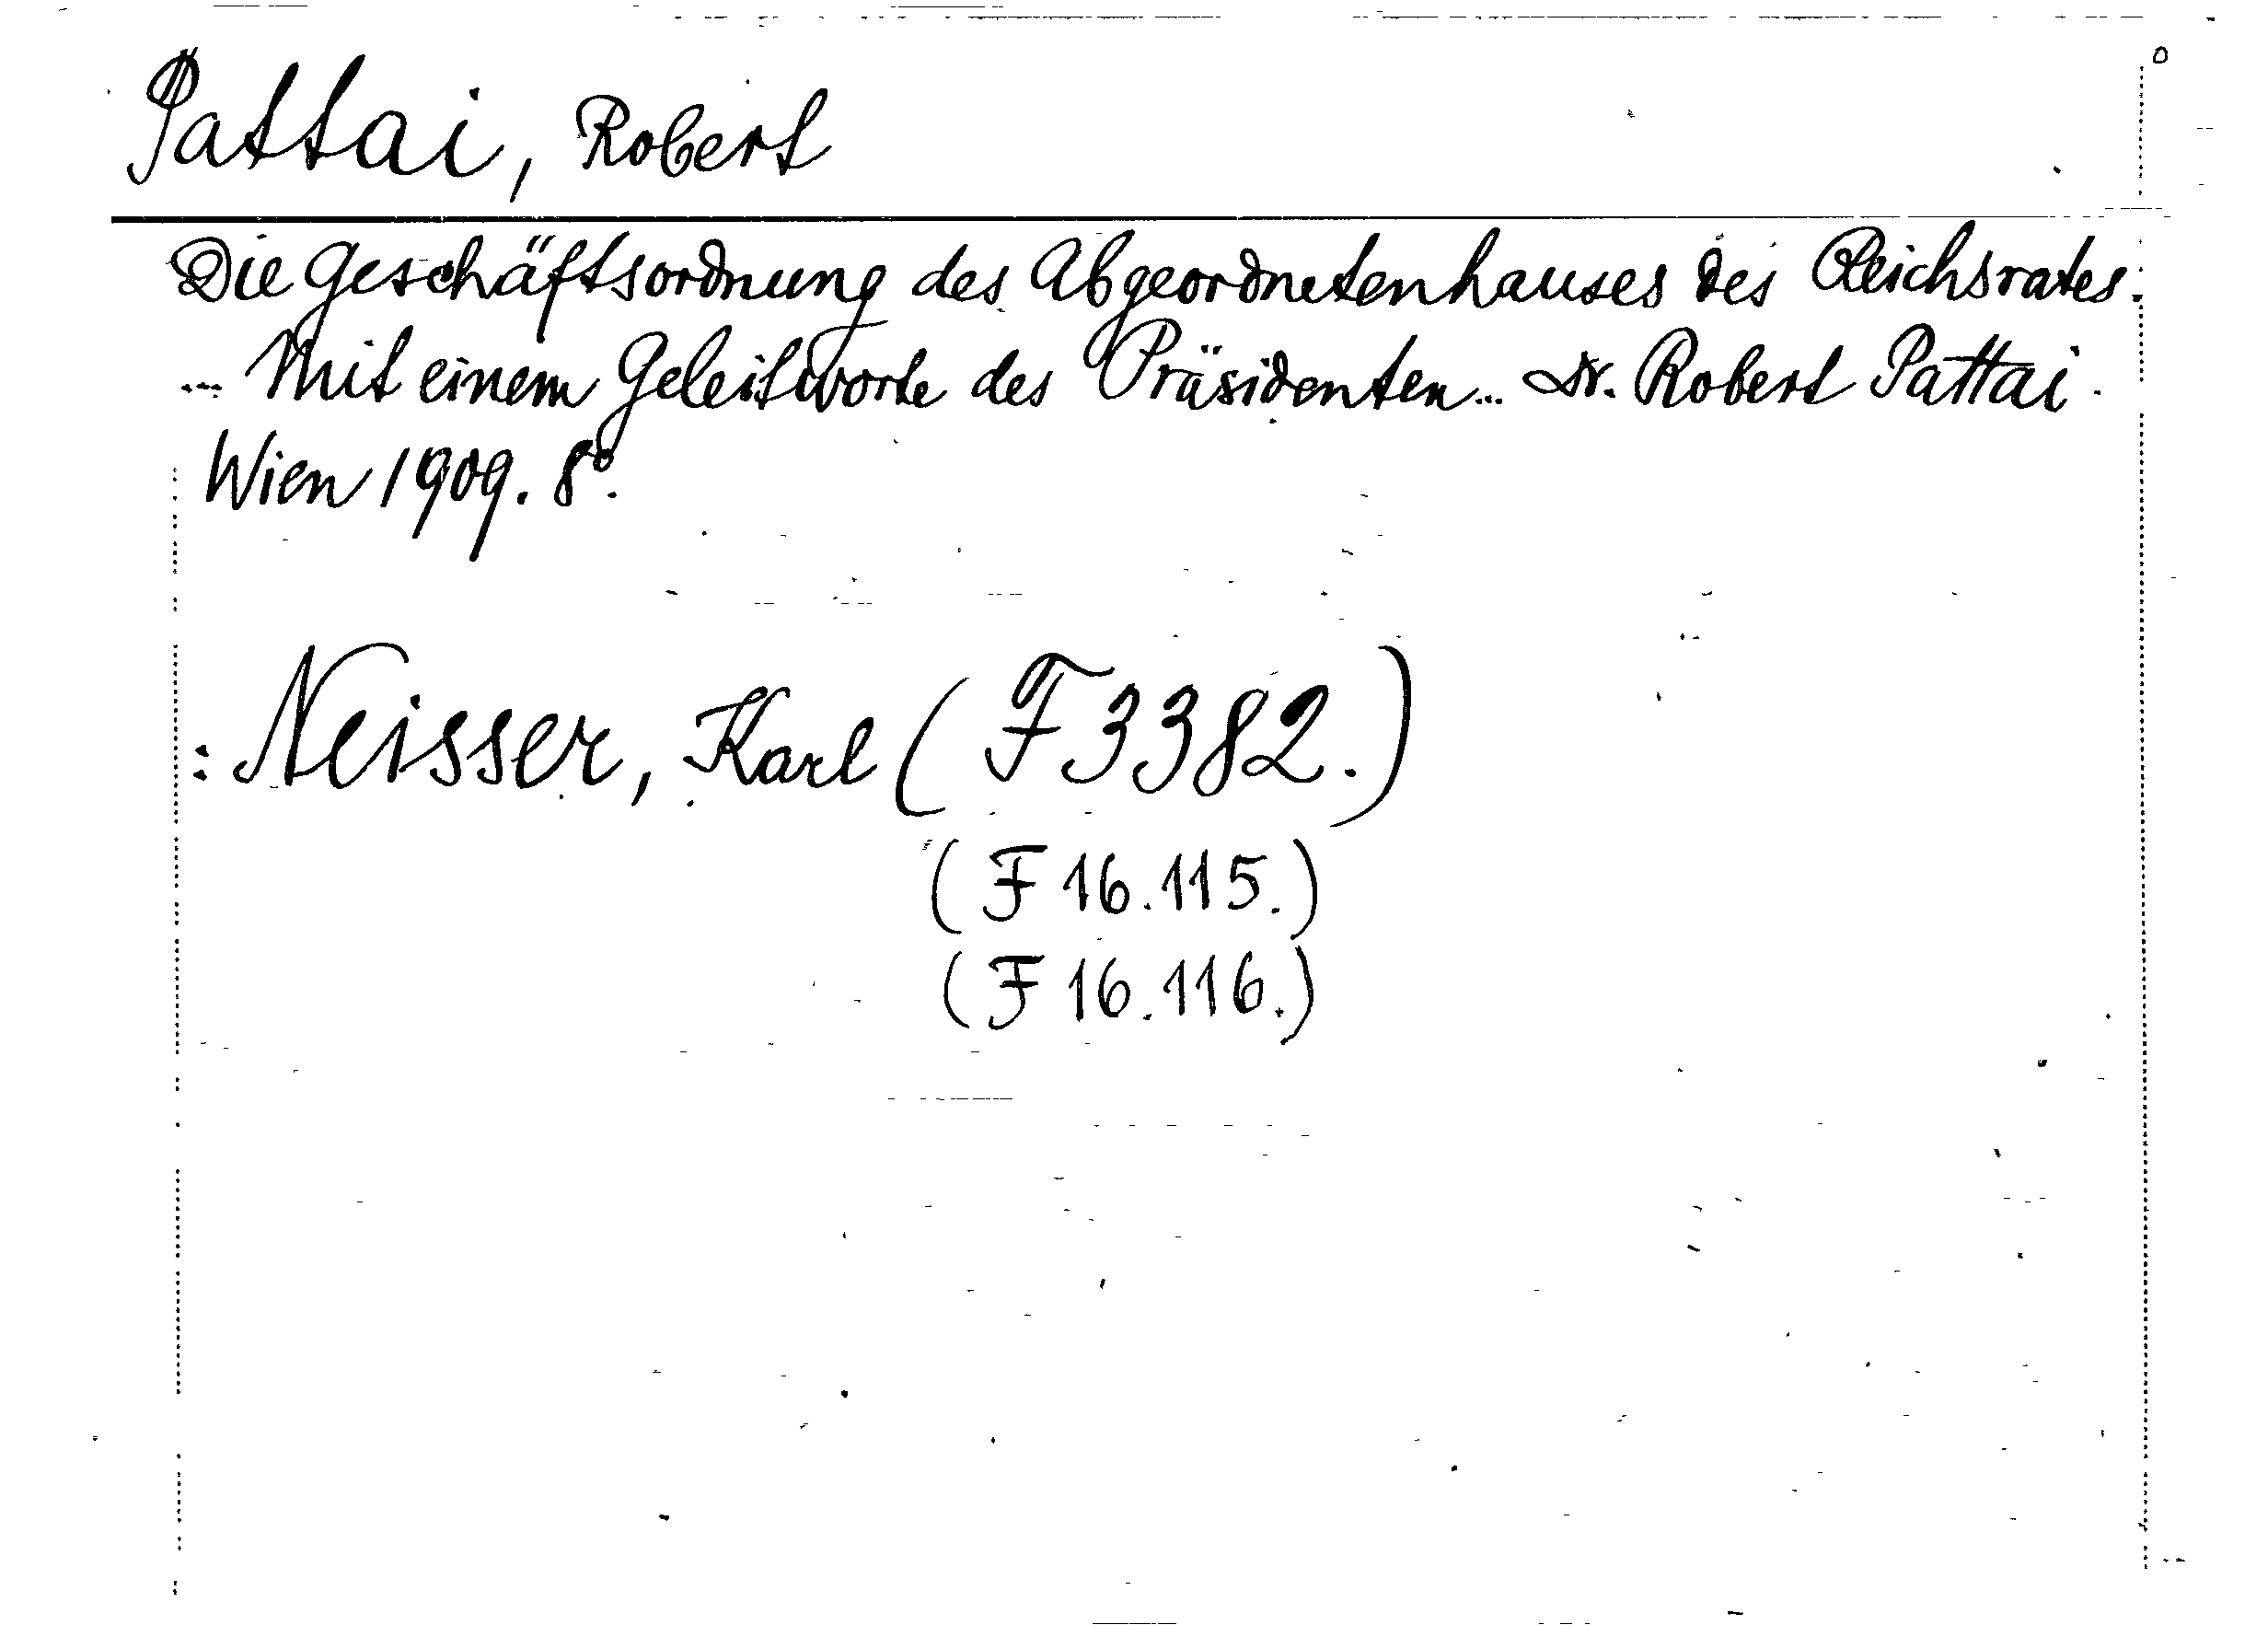 Pattai, Robert
Die Geschäftsordnung des Abgeordnetenhauses des Reichsrates.
... Mit einem Geleitworte des Präsidenten... Dr. Robert Pattai.
Wien 1909. 8°.
: Neisser, Karl (F 3382.)
(F 16.115.)
(F 16.116.)